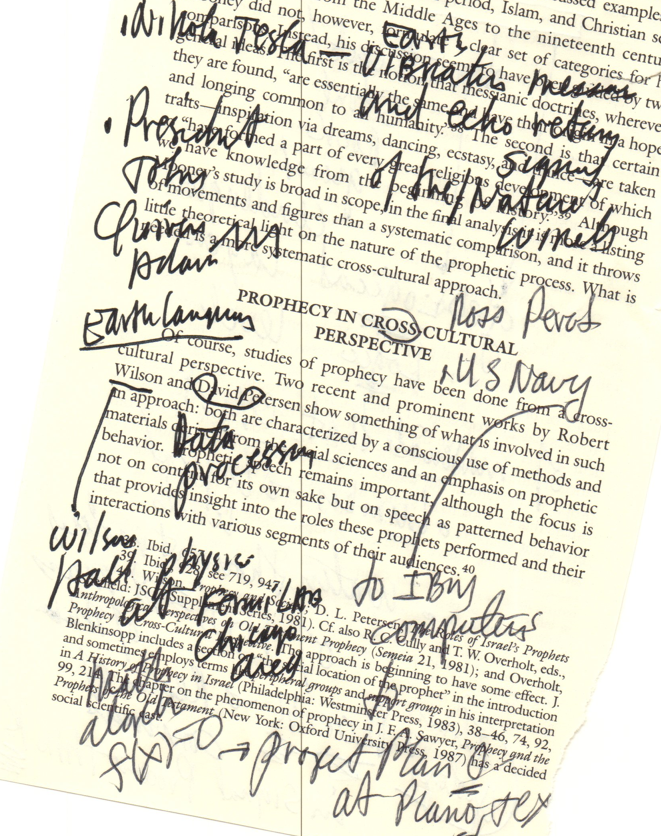 the Middle Ages to the nineteenth
did not, however, clear set of categories for
instead, his
general The first is the that messianic doctrines, wherever
they are found, “are essentially the same
and longing common to humanity.” The second is that certain
traits—inspiration via dreams, dancing, ecstasy, are taken
formed a part of every great religious development of which
we have knowledge from the history.”³⁹ Although
study is broad in scope, in the final analysis it is
of movements and figures than a systematic comparison, and it throws
little theoretical light on the nature of the prophetic process. What is
is a more systematic cross-cultural approach.
Nikola Tesla — Earth
Vibrates
and echo return
signal
of the/Nature
• President
John
Quincy
Adam
Earth Languages
PROPHECY IN CROSS-CULTURAL
PERSPECTIVE
Ross Perot
US Navy
Of course, studies of prophecy have been done from a cross-
cultural perspective. Two recent and prominent works by Robert
Wilson and David Petersen show something of what is involved in such
an approach: both are characterized by a conscious use of methods and
materials from the social sciences and an emphasis on prophetic
behavior. Prophetic speech remains important, although the focus is
not on content for its own sake but on speech as patterned behavior
that provides insight into the roles these prophets performed and their
interactions with various segments of their audiences.⁴⁰
Data
processing
Wilson
Hall physics
at FermiLab
Chicago
area
to IBM
Computers
to
39. Ibid.
39. Ibid., see 719, 947.
Wilson, Prophecy and D. L. Petersen, Roles of Israel’s Prophets
JSOT Supplement Series, 1981). Cf. also R. Culley and T. W. Overholt, eds.,
Anthropological Perspectives on Old Testament Prophecy (Semeia 21, 1981); and Overholt,
Prophecy in Cross-Cultural The approach is beginning to have some effect. J.
Blenkinsopp includes a section social location of the prophet” in the introduction
and sometimes employs terms peripheral groups and support groups in his interpretation
in A History of Prophecy in Israel (Philadelphia: Westminster Press, 1983), 38–46, 74, 92,
99, The chapter on the phenomenon of prophecy in J. F. A. Sawyer, Prophecy and the
Prophets of the Old Testament (New York: Oxford University Press, 1987) has a decided
social scientific cast.
Math
f(x)=0 → project plan
at Plano, Tex